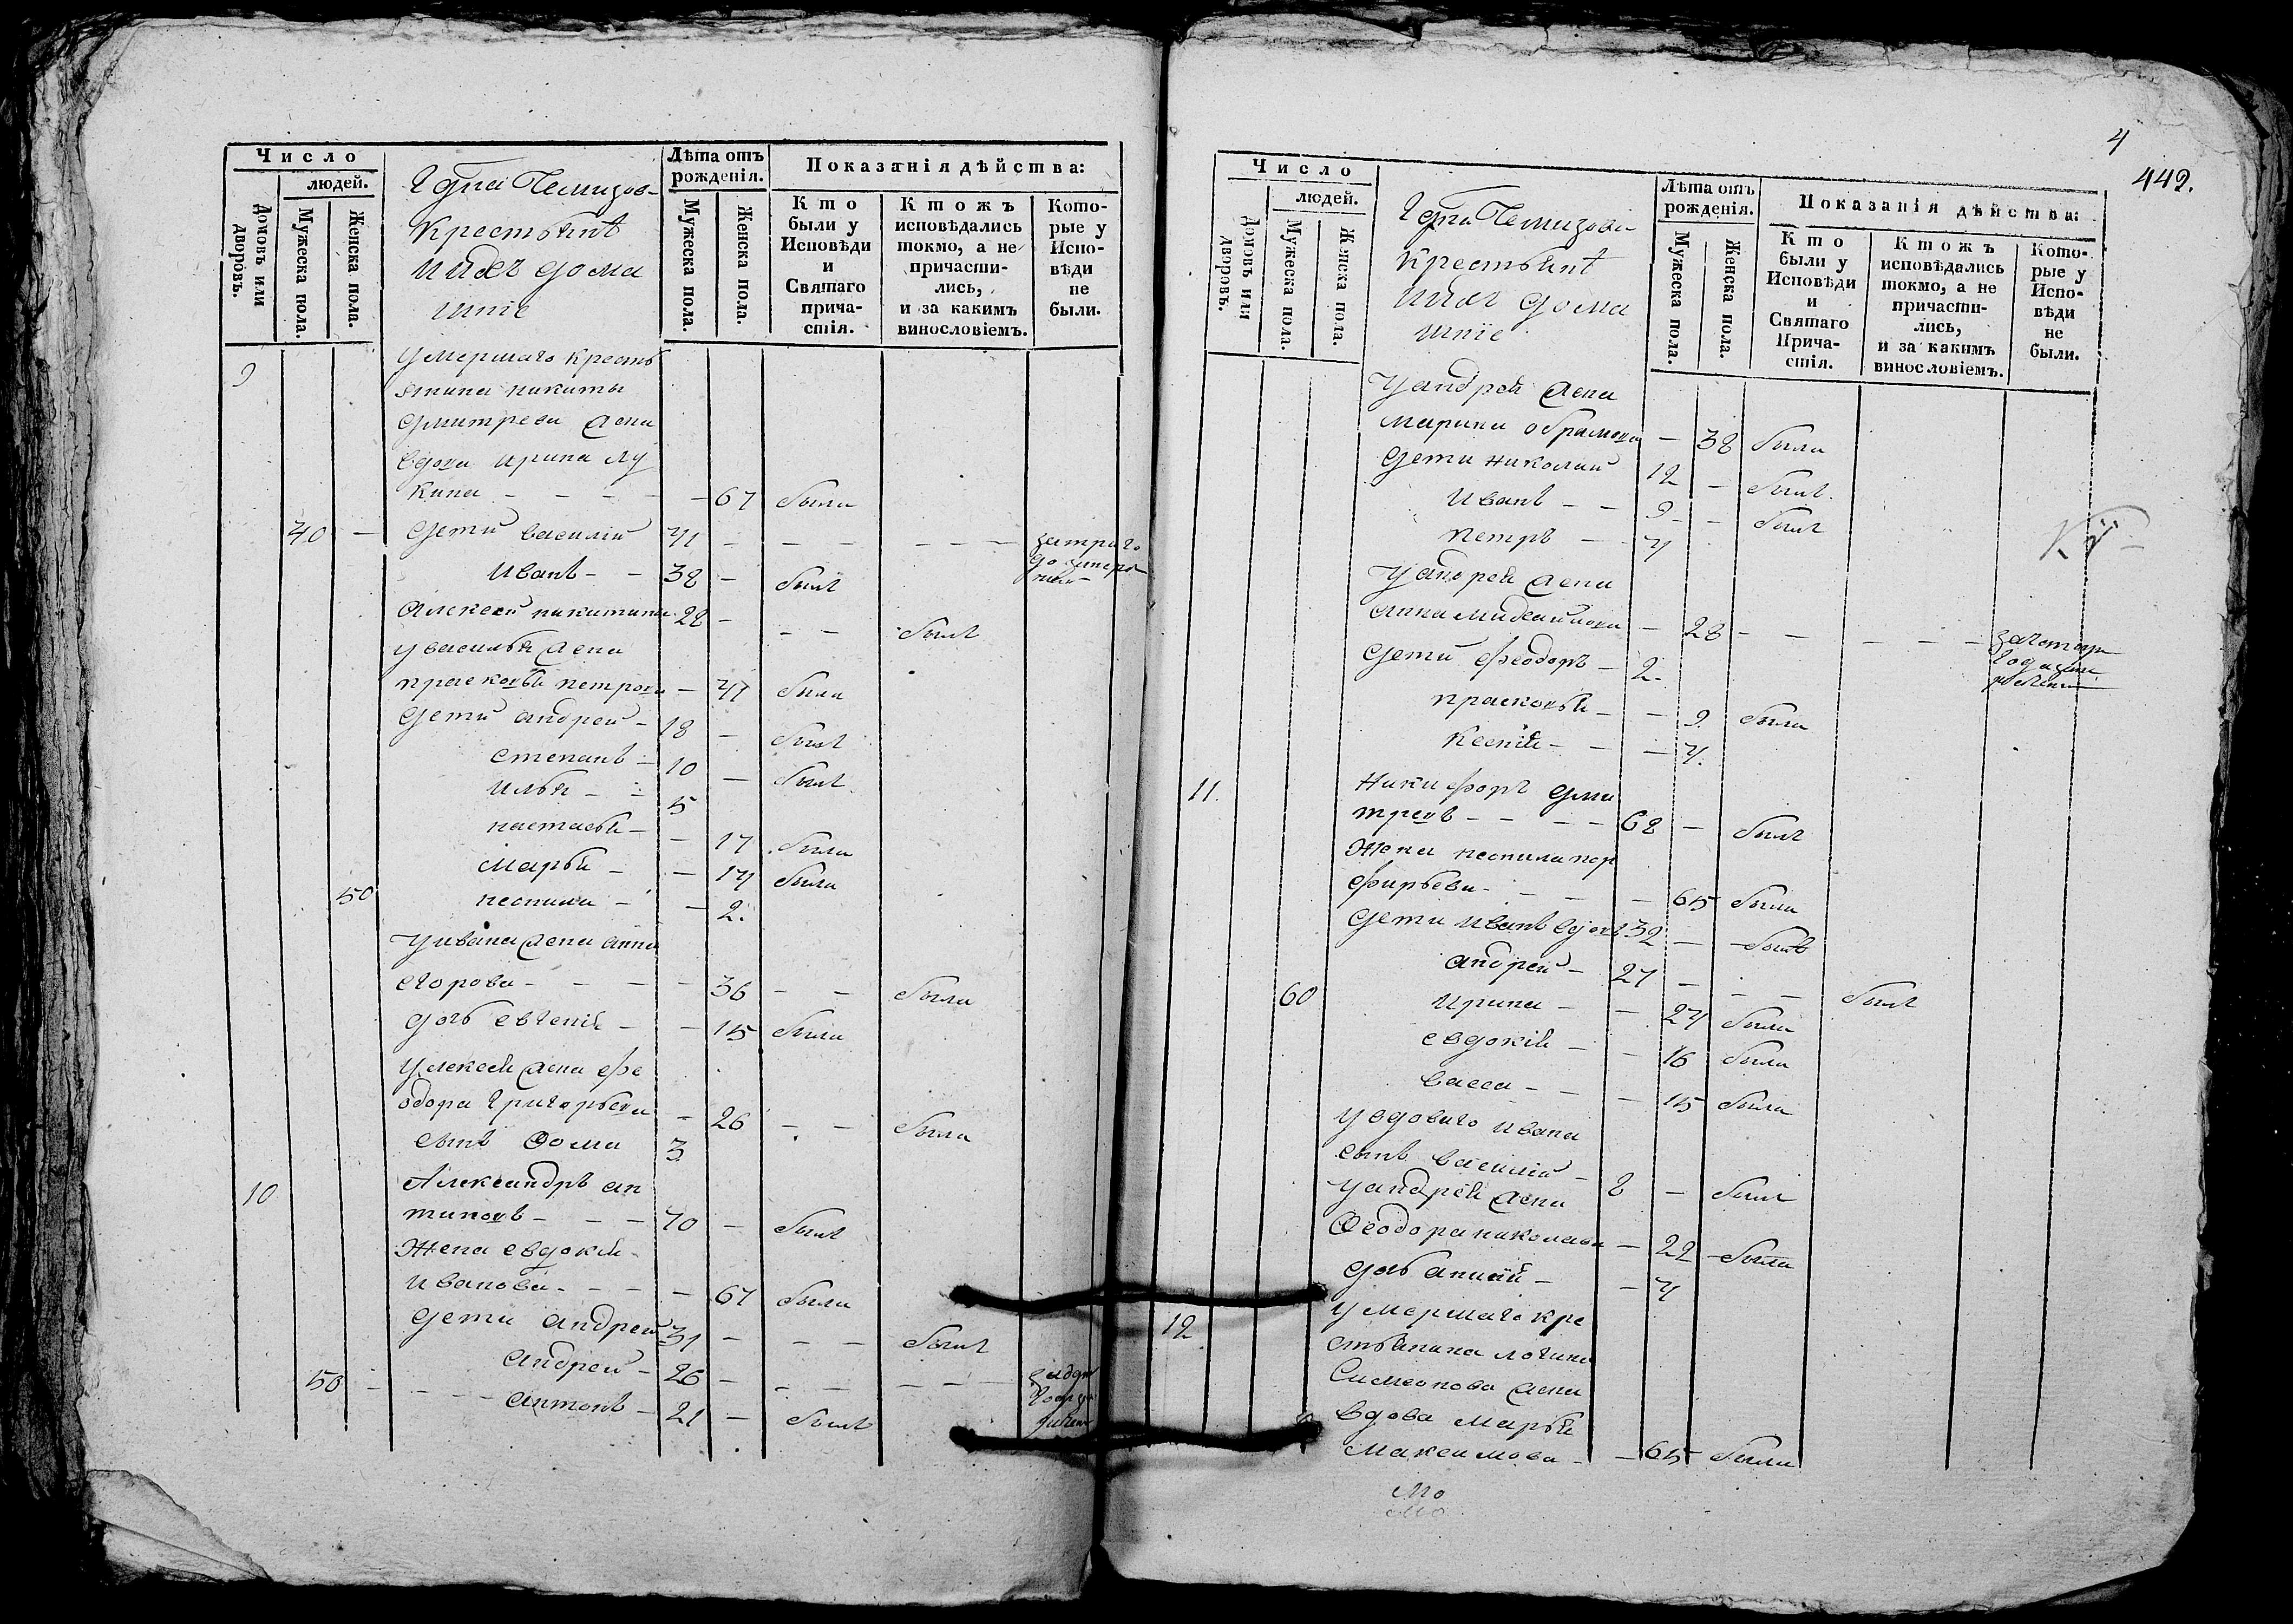 Число
людей.
Домовъ или дворовъ.
Мужеска пола.
Женска пола.
Крестьянѣ
и ихъ дома
шніе
Лѣта отъ рожденія.
Мужеска пола.
Женска пола.
Показанія дѣйства:
Кто были у Исповѣди и Святаго причастія.
Ктожъ исповѣдались токмо, а не причастились, и за какимъ винословіемъ.
Которые у Исповѣди не были.
9 умершаго кресть
янина никиты
дмитрева жена
вдова ирина лу
кина - - - - - 67 была
40 - дети василий 41 - - - - - -
иванъ - - 38 - былъ
алексей никитины 22 - - - былъ
у василья жена
прасковья петрова - 41 была
дети андрей - 18 - былъ
степанъ - 10 - былъ
илья - - 5
настасья - - 17 была
марья - - 14 была
50 неонила - - 2.
у ивана жена анна
егорова - - - - 36 - - была
дочь евгенія - - 15 была
у алексея жена фе
одора григорьева - 26 - - была
сынъ Фома 3
10 Александръ ан
типовъ - - - 70 - былъ
жена евдокія
иванова - - - - 67 была
дети андрей 31 - - - былъ
50 - - - - андрей - 26 - - - - - -
антонъ - 21 - былъ
4
442.
Число
людей.
Домовъ или дворовъ.
Мужеска пола.
Женска пола.
Крестьянѣ
и ихъ дома
шніе
Лѣта отъ рожденія.
Мужеска пола.
Женска пола.
Показанія дѣйства:
Кто были у Исповѣди и Святаго Причастія.
Ктожъ исповѣдались токмо, а не причастились, и за какимъ винословіемъ.
Которые у Исповѣди не были.
у андрея жена
марина обрамова - 38 была
дети николай 12 - былъ
иванъ - - 9 - - былъ
петръ - - 4
у андрея жена
анна михайлова - 28 - - - - -
дети феодоръ - 2.
прасковья - - 9. была
ксенія - - - 4.
11. никифоръ дми
тревъ - - - - 68 - былъ
жена неонила пор
фирьева - - - - 65 была
дети иванъ вдовъ 32 - былъ
андрей - 27 - - - былъ
60 ирина - - 24 была
евдокія - - 16 была
васса - - - 15 была
у вдоваго ивана
сынъ василій - 8 - былъ
у андрея жена
Феодора николаева - 22 была
дочь - - 4
12 умершаго кре
стьянина логина
Симеонова жена
вдова марья
максимова - - 65 была
мо